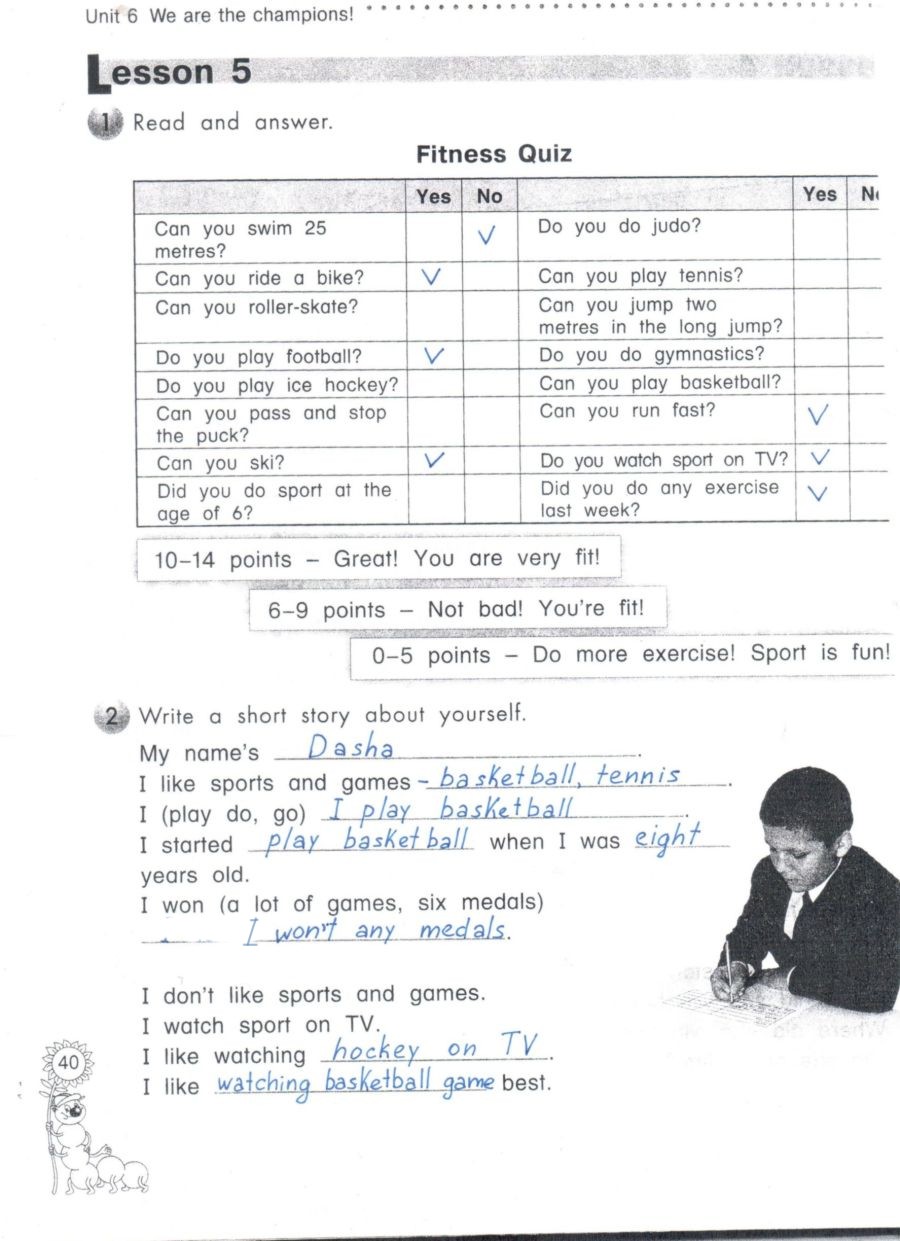 Unit 6 We are the champions!
Lesson 5
1 Read and answer.
Fitness Quiz
Yes No Yes
Can you swim 25 metres? V Do you do judo?
Can you ride a bike? V Can you play tennis?
Can you roller-skate? Can you jump two metres in the long jump?
Do you play football? V Do you do gymnastics?
Do you play ice hockey? Can you play basketball?
Can you pass and stop the puck? Can you run fast? V
Can you ski? V Do you watch sport on TV? V
Did you do sport at the age of 6? Did you do any exercise last week? V
10–14 points – Great! You are very fit!
6–9 points – Not bad! You're fit!
0–5 points – Do more exercise! Sport is fun!
2 Write a short story about yourself.
My name's Dasha.
I like sports and games - basketball, tennis.
I (play do, go) I play basketball.
I started play basketball when I was eight
years old.
I won (a lot of games, six medals)
I won't any medals.
I don't like sports and games.
I watch sport on TV.
I like watching hockey on TV.
I like watching basketball game best.
40